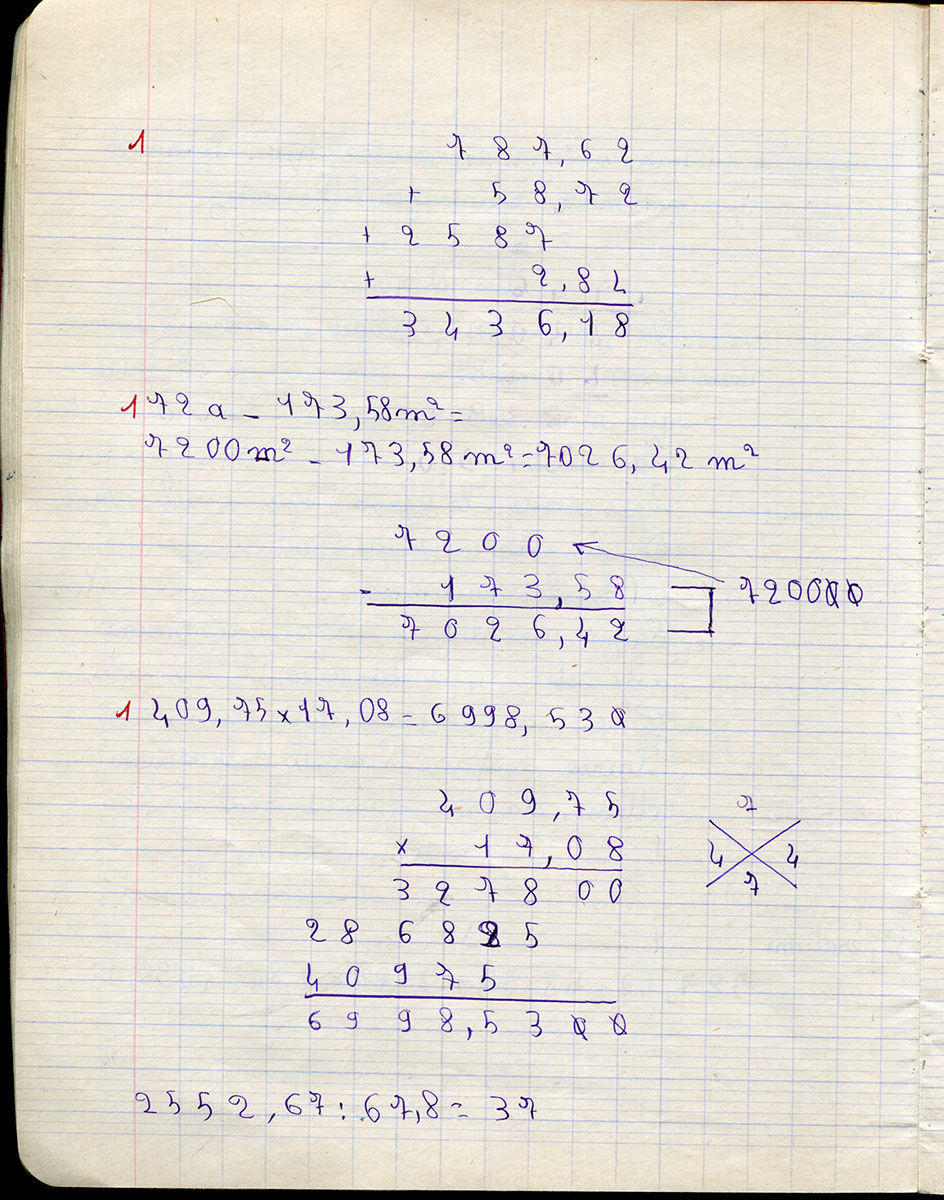 1 7 8 7, 6 2
+ 5 8, 7 2
+ 2 5 8 7
+ 2, 8 4
3 4 3 6, 1 8
1 72 a - 173,58 m² =
7200 m² - 173,58 m² = 7026,42 m²
7 2 0 0
- 1 7 3, 5 8 720000
7 0 2 6, 4 2
1 409,75 x 17,08 = 6998,530
4 0 9, 7 5 7
x 1 7, 0 8 4 4
3 2 7 8 0 0 7
2 8 6 8 2 5
4 0 9 7 5
6 9 9 8, 5 3 0 0
2552,67 : 67,8 = 37